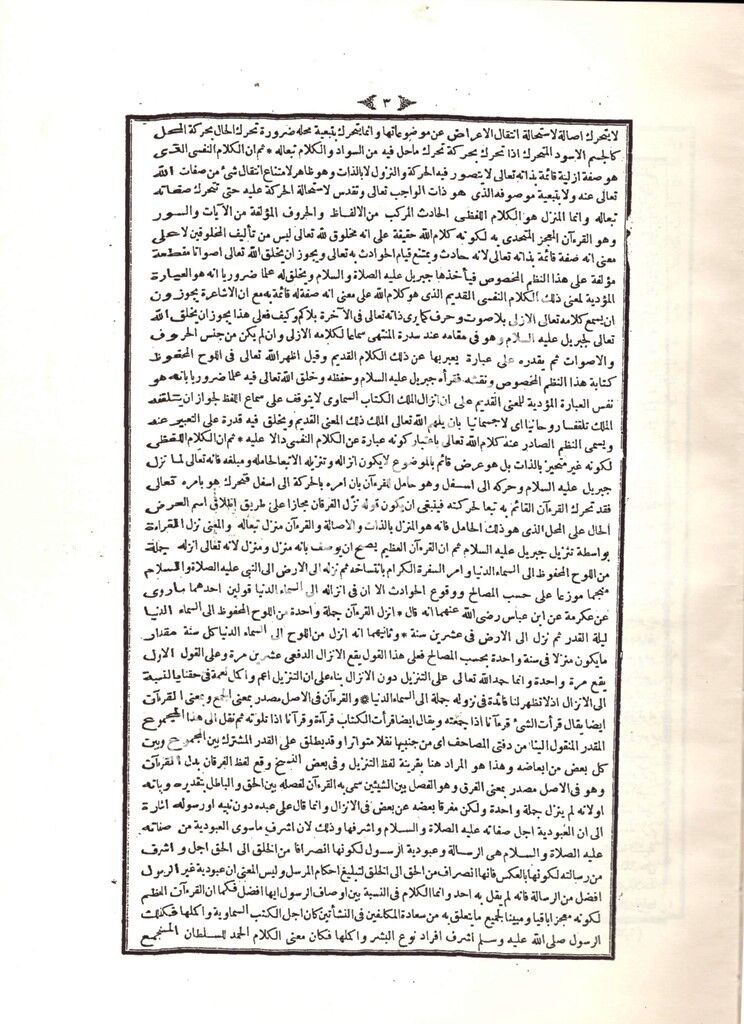 ٣
لا يتحرك اصالة لاستحالة انتقال الاعراض عن موضوعاتها وانما يتحرك بتبعية محله ضرورة تحرك الحال بحركة المحل
كالجسم الاسود المتحرك اذا تحرك بحركة تحرك ماحل فيه من السواد والكلام تبعاله * ثم ان الكلام النفسى الذى
هو صفة ازلية قائمة بذاته تعالى لا يتصور فيه الحركة والنزول لا بالذات وهو ظاهر لامتناع انتقال شئ من صفات الله
تعالى عنه ولا بتبعية موصوفه الذى هو ذات الواجب تعالى وتقدس لاستحالة الحركة عليه حتى تتحرك صفاته
تبعاله وانما المنزل هو الكلام اللفظى الحادث المركب من الالفاظ والحروف المؤلفة من الآيات والسور
وهو القرءآن المعجز المتحدى به لكونه كلام الله حقيقة على انه مخلوق لله تعالى ليس من تأليف المخلوقين لا على
معنى انه صفة قائمة بذاته تعالى لانه حادث ويمتنع قيام الحوادث به تعالى ويجوز ان يخلق الله تعالى اصواتا مقطعة
مؤلفة على هذا النظم المخصوص فيأخذها جبريل عليه الصلاة والسلام ويخلق له علما ضروريا انه هو العبارة
المؤدية لمعنى ذلك الكلام النفسى القديم الذى هو كلام الله على معنى انه صفة له قائمة به مع ان الاشاعرة يجوزون
ان يسمع كلامه تعالى الازلى بلا صوت وحرف كما يرى ذاته تعالى فى الآخرة بلا كم وكيف فعلى هذا يجوز ان يخلق الله
تعالى لجبريل عليه السلام وهو فى مقامه عند سدرة المنتهى سماعا لكلامه الازلى وان لم يكن من جنس الحروف
والاصوات ثم يقدره على عبارة يعبر بها عن ذلك الكلام القديم وقيل اظهر الله تعالى فى اللوح المحفوظ
كتابة هذا النظم المخصوص ونقشه فقرأه جبريل عليه السلام وحفظه وخلق الله تعالى فيه علما ضروريا بانه هو
نفس العبارة المؤدية للمعنى القديم على ان انزال الملك الكتاب السماوى لا يتوقف على سماع اللفظ لجواز ان يتلقفه
الملك تلقفا روحانيا اى لا جسمانيا بان يلهم الله تعالى الملك ذلك المعنى القديم ويخلق فيه قدرة على التعبير عنه
ويسمى النظم الصادر عنه كلام الله تعالى باعتبار كونه عبارة عن الكلام النفسى دالا عليه * ثم ان الكلام اللفظى
لكونه غير متحيز بالذات بل هو عرض قائم بالموضوع لا يكون انزاله وتنزيله الا تبعا لحامله ومبلغه فانه تعالى لما نزل
جبريل عليه السلام وحركه الى اسفل وهو حامل للقرءآن بان امره بالحركة الى اسفل فتحرك هو بامره تعالى
فقد تحرك القرءآن القائم به تبعا لحركته فينبغى ان يكون قوله نزل الفرقان مجازا على طريق اطلاق اسم العرض
الحال على المحل الذى هو ذلك الحامل فانه هو المنزل بالذات والاصالة والقرءآن منزل تبعاله والمعنى نزل القراءة
بواسطة تنزيل جبريل عليه السلام ثم ان القرءآن العظيم يصح ان يوصف بانه منزل ومنزل لانه تعالى انزله جملة
من اللوح المحفوظ الى السماء الدنيا وامر السفرة الكرام بانتساخه ثم نزله الى الارض الى النبى عليه الصلاة والسلام
منجما موزعا على حسب المصالح ووقوع الحوادث الا ان فى انزاله الى السماء الدنيا قولين احدهما ماروى
عن عكرمة عن ابن عباس رضى الله عنهما انه قال * انزل القرءآن جملة واحدة من اللوح المحفوظ الى السماء الدنيا
ليلة القدر ثم نزل الى الارض فى عشرين سنة * وثانيهما انه انزل من اللوح الى السماء الدنيا كل سنة مقدار
مايكون منزلا فى سنة واحدة بحسب المصالح فعلى هذا القول يقع الانزال الدفعى عشرين مرة وعلى القول الاول
يقع مرة واحدة وانما حمد الله تعالى على التنزيل دون الانزال بناء على ان التنزيل اعم واكل نعمة فى حقنا بالنسبة
الى الانزال اذ لا تظهر لنا فائدة فى نزوله جملة الى السماء الدنيا * والقرءآن فى الاصل مصدر بمعنى الجمع وبمعنى القراءت
ايضا يقال قرأت الشئ قرءآنا اذا جمعته ويقال ايضا قرأت الكتاب قراءة وقرءآنا اذا تلوته ثم نقل الى هذا المجموع
المقدر المنقول الينا من دفتى المصاحف اى من جنبيها نقلا متواترا وقد يطلق على القدر المشترك بين المجموع وبين
كل بعض من ابعاضه وهذا هو المراد هنا بقرينة لفظ التنزيل وفى بعض النسخ وقع لفظ الفرقان بدل القرءآن
وهو فى الاصل مصدر بمعنى الفرق وهو الفصل بين الشيئين سمى به القرءآن لفصله بين الحق والباطل بتقديره وبيانه
اولانه لم ينزل جملة واحدة ولكن مفرقا بعضه عن بعض فى الانزال وانما قال على عبده دون نبيه اورسوله اشارة
الى ان العبودية اجل صفاته عليه الصلاة والسلام واشرفها وذلك لان اشرف ماسوى العبودية من صفاته
عليه الصلاة والسلام هى الرسالة وعبودية الرسول لكونها انصرافا من الخلق الى الحق اجل واشرف
من رسالته لكونها بالعكس فانها انصراف من الحق الى الخلق لتبليغ احكام المرسل وليس المعنى ان عبودية غير الرسول
افضل من الرسالة فانه لم يقل به احد وانما الكلام فى النسبة بين اوصاف الرسول ايها افضل فكما ان القرءآن العظيم
لكونه معجزا باقيا ومبينا لجميع مايتعلق به من سعادة المكلفين فى النشأتين كان اجل الكتب السماوية واكلها فكذلك
الرسول صلى الله عليه وسلم اشرف افراد نوع البشر واكلها فكان معنى الكلام الحمد للسلطان المستجمع